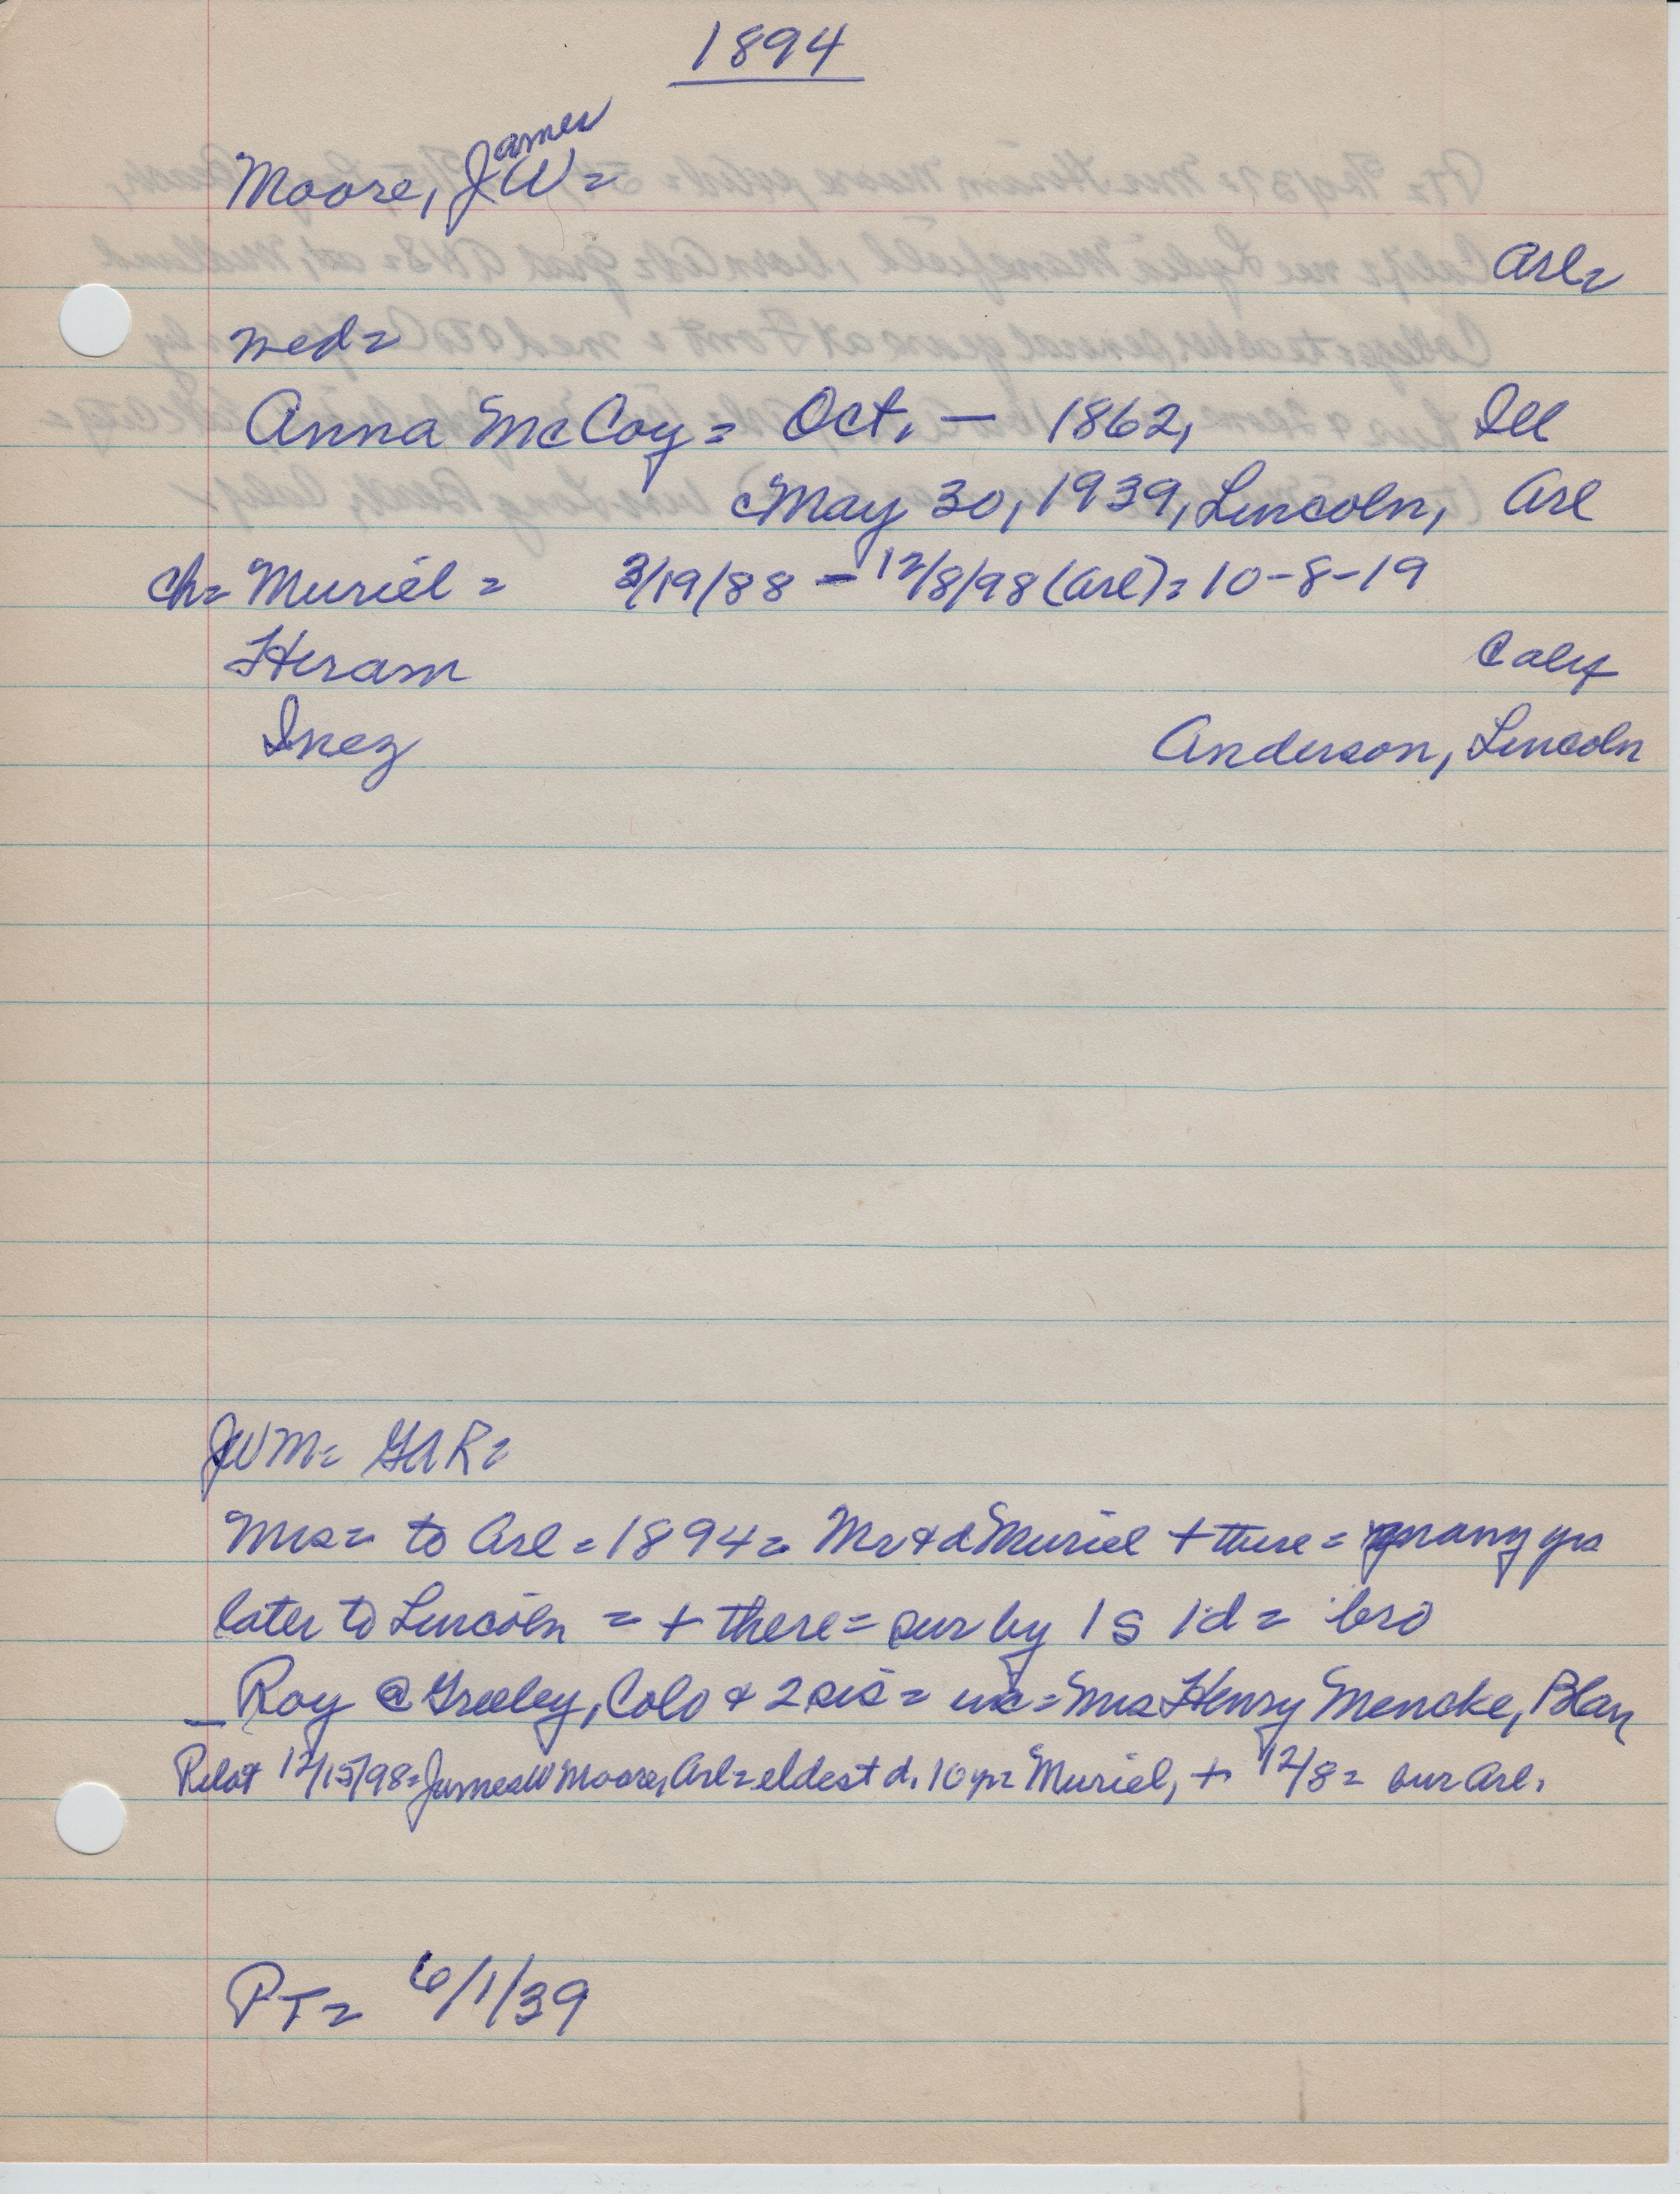 1894
Moore, James W =
Arl =
wed =
Anna McCoy = Oct. — 1862, Ill
May 30, 1939, Lincoln, Arl
ch = Muriel = 3/19/88 — 12/8/98 (Arl) = 10-8-19
Hiram Calif
Inez Anderson, Lincoln
JWM = GAR =
Mrs = to Arl = 1894 = Mr & d Muriel + there = many yrs
later to Lincoln = + there = sur by 1 s 1 d = bro
Roy @ Greeley, Colo & 2 sis = inc = Mrs Henry Mencke, Blair
Pilot 12/15/98 = James W Moore, Arl = eldest d. 10 yr = Muriel, + 12/8 = bur Arl.
PT = 6/1/39